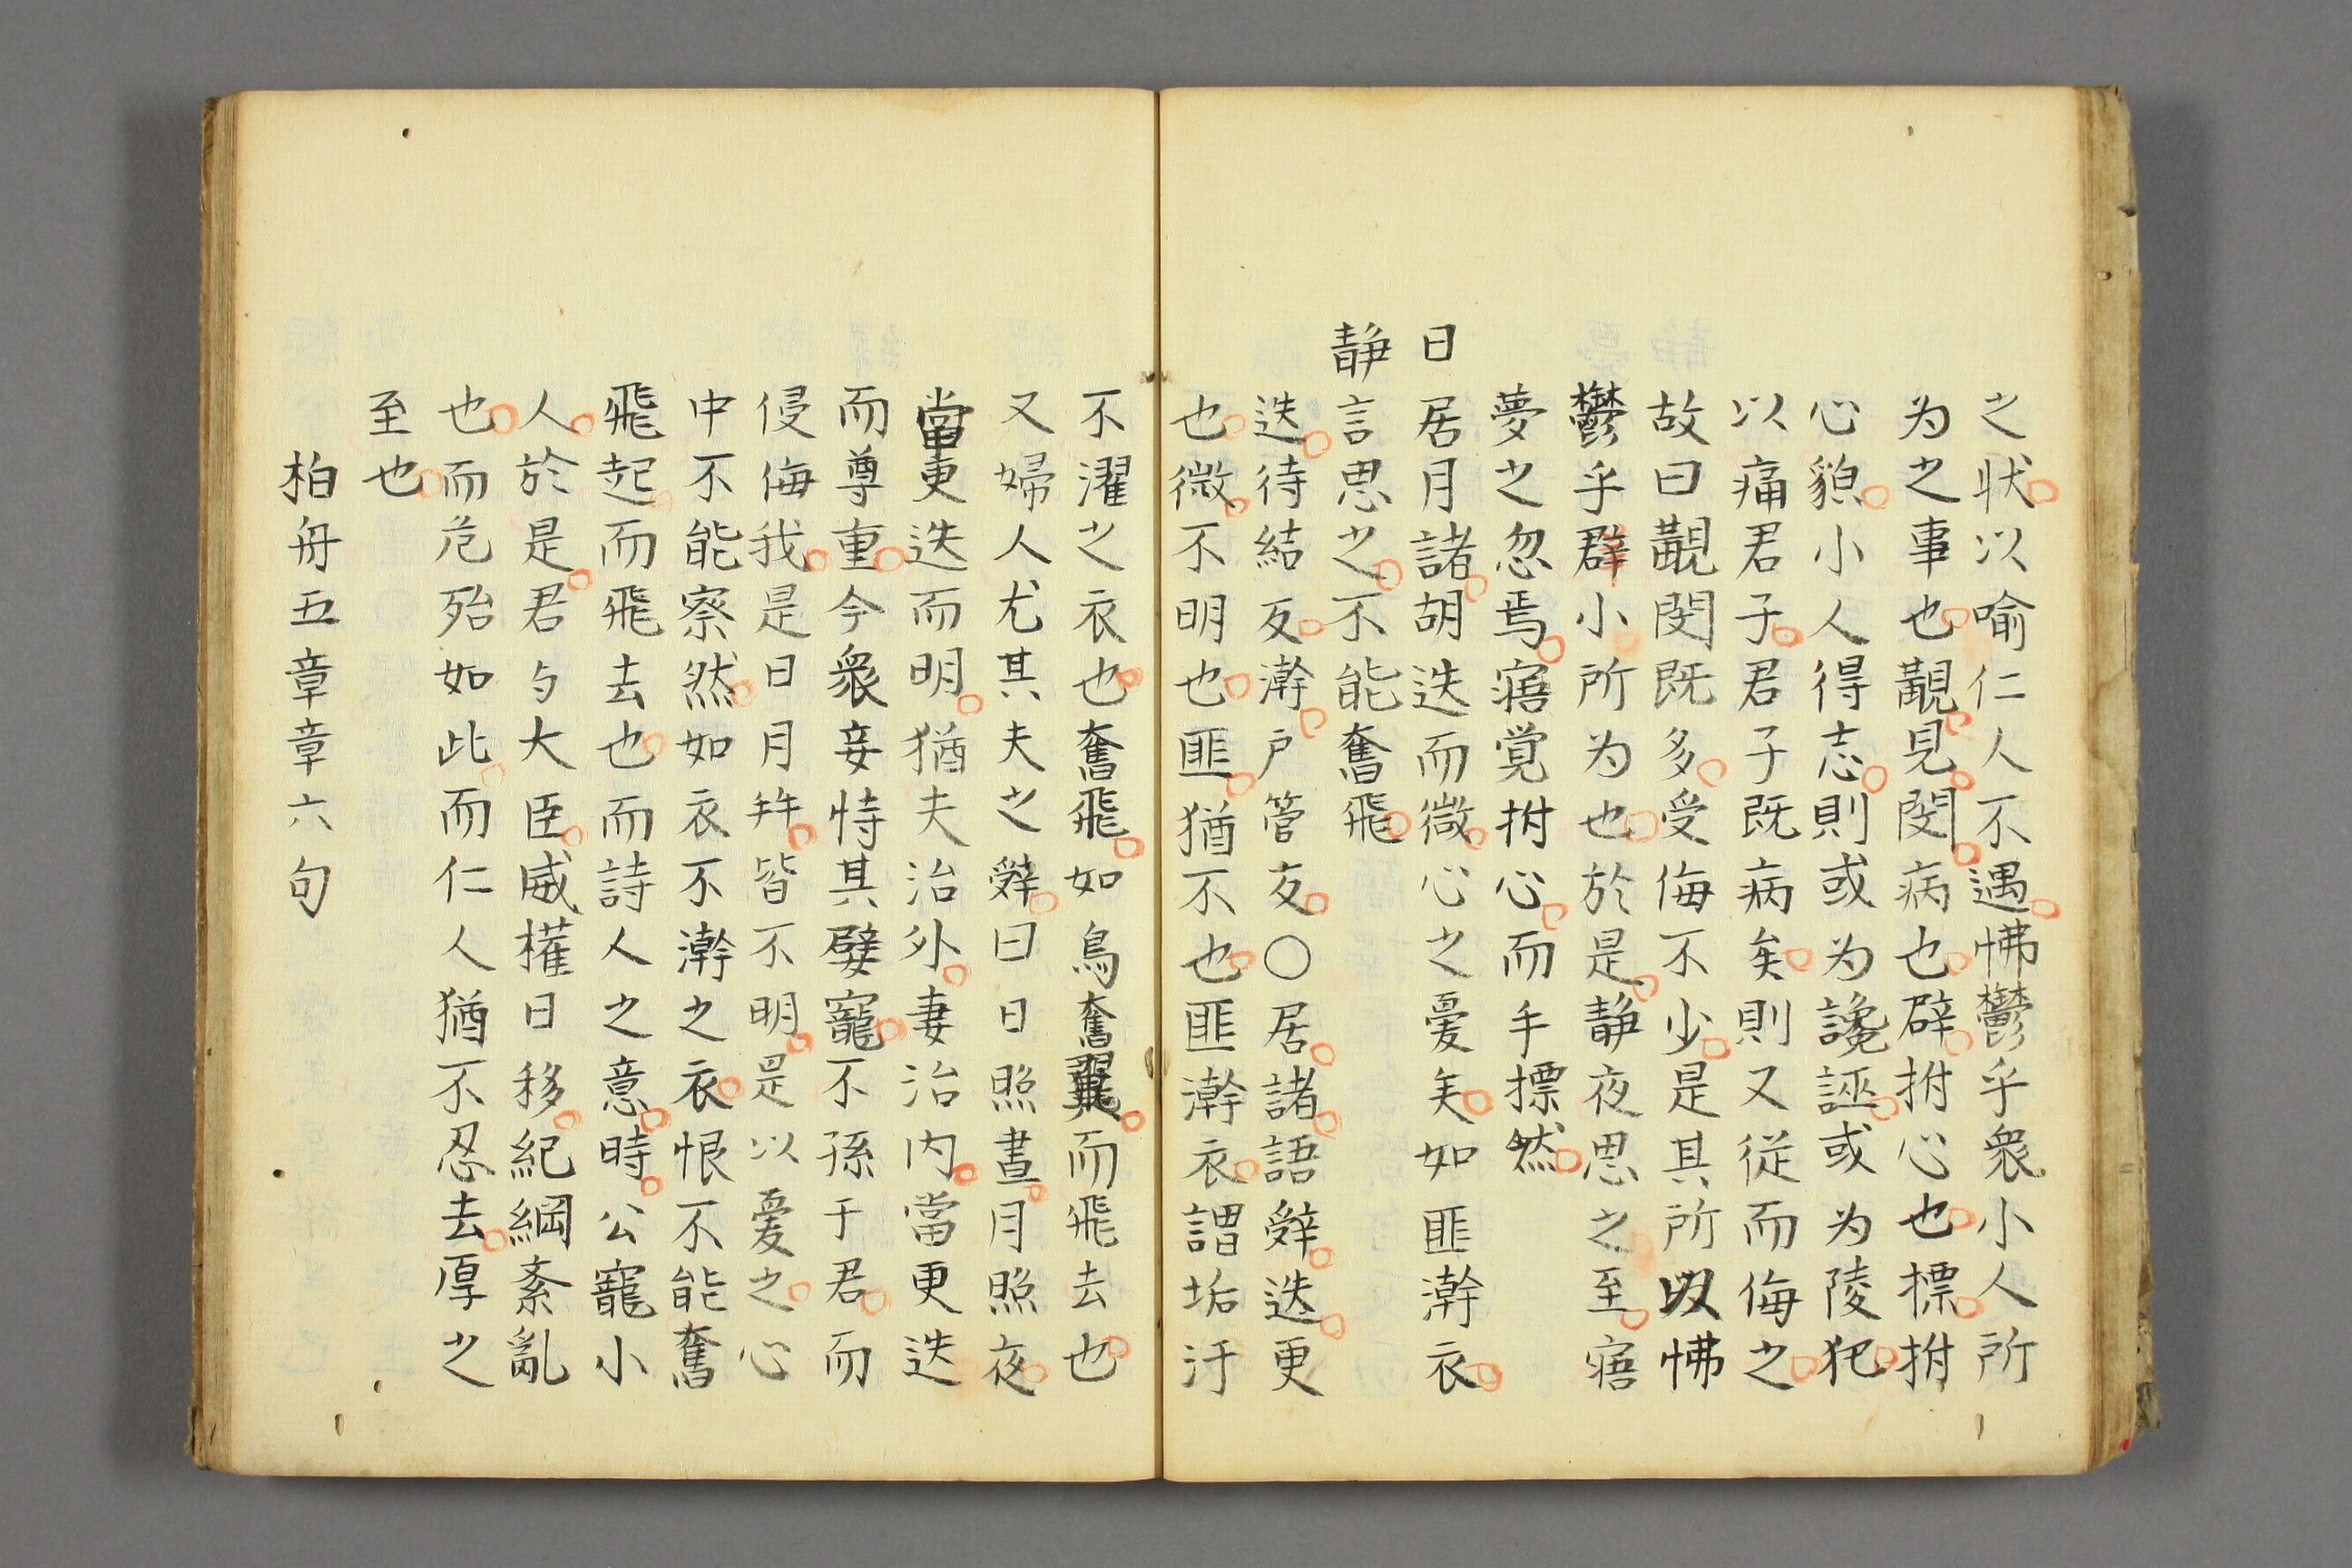 之状以喻仁人不遇怫鬱乎衆小人所
为之事也覯見閔病也辟拊心也摽拊
心貌小人得志則或为讒誣或为陵犯
以痛君子君子既病矣則又従而侮之
故曰覯閔既多受侮不少是其所以怫
鬱乎群小所为也於是静夜思之至寤
夢之忽焉寤覚拊心而手摽然
日居月諸胡迭而微心之憂矣如匪澣衣
静言思之不能奮飛
迭待結反澣戸管反○居諸語辤迭更
也微不明也匪猶不也匪澣衣謂垢汙
不濯之衣也奮飛如鳥奮翼而飛去也
又婦人尤其夫之辤曰日照晝月照夜
當更迭而明猶夫治外妻治内當更迭
而尊重今衆妾恃其嬖寵不孫于君而
侵侮我是日月并皆不明是以憂之心
中不能察然如衣不澣之衣恨不能奮
飛起而飛去也而詩人之意時公寵小
人於是君与大臣威権日移紀綱紊亂
也而危殆如此而仁人猶不忍去厚之
至也
柏舟五章章六句